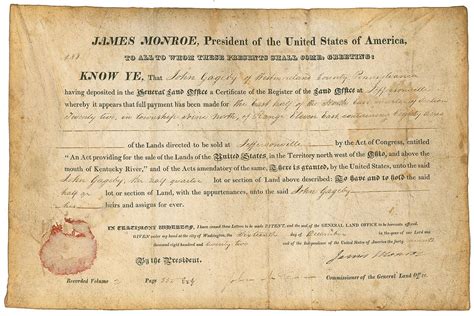 JAMES MONROE, President of the United States of America,
TO ALL TO WHOM THESE PRESENTS SHALL COME, GREETING:
KNOW YE, That John Gageby of Westmoreland County Pennsylvania
having deposited in the General Land Office a Certificate of the Register of the Land Office at Jeffersonville
whereby it appears that full payment has been made for the East half of the South East quarter of Section
Twenty two, in township seven north, of Range Eleven East containing Eighty Acres
of the Lands directed to be sold at Jeffersonville by the Act of Congress, entitled
"An Act providing for the sale of the Lands of the United States, in the Territory north west of the Ohio, and above the
mouth of Kentucky River," and of the Acts amendatory of the same, There is granted, by the United States, unto the said
John Gageby, the half quarter lot or section of Land above described: To have and to hold the said
half quarter lot or section of Land, with the appurtenances, unto the said John Gageby
his heirs and assigns for ever.
In Testimony Whereof, I have caused these Letters to be made PATENT, and the seal of the GENERAL LAND OFFICE to be hereunto affixed.
GIVEN under my hand at the city of Washington, the day of December in the year of our Lord one
thousand eight hundred and twenty two and of the Independence of the United States of America the forty seventh
By the President. James Monroe
Commissioner of the General Land Office.
Recorded Volume Page